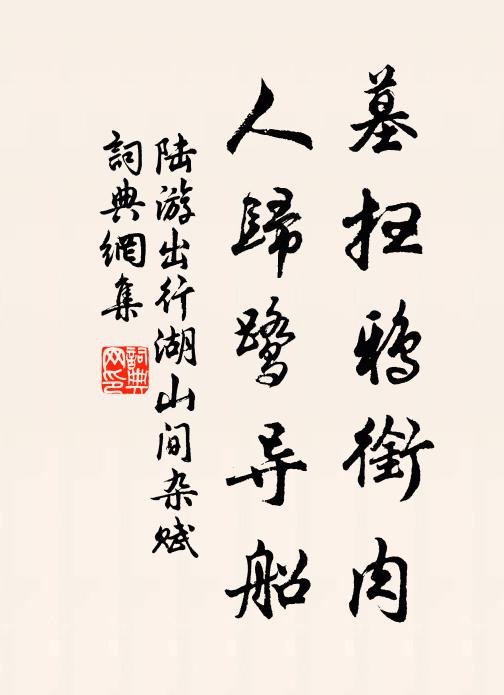 墓扫鸦銜肉
人歸鹭导船
陆游出行湖山间杂赋
詞典網集
詞典网印